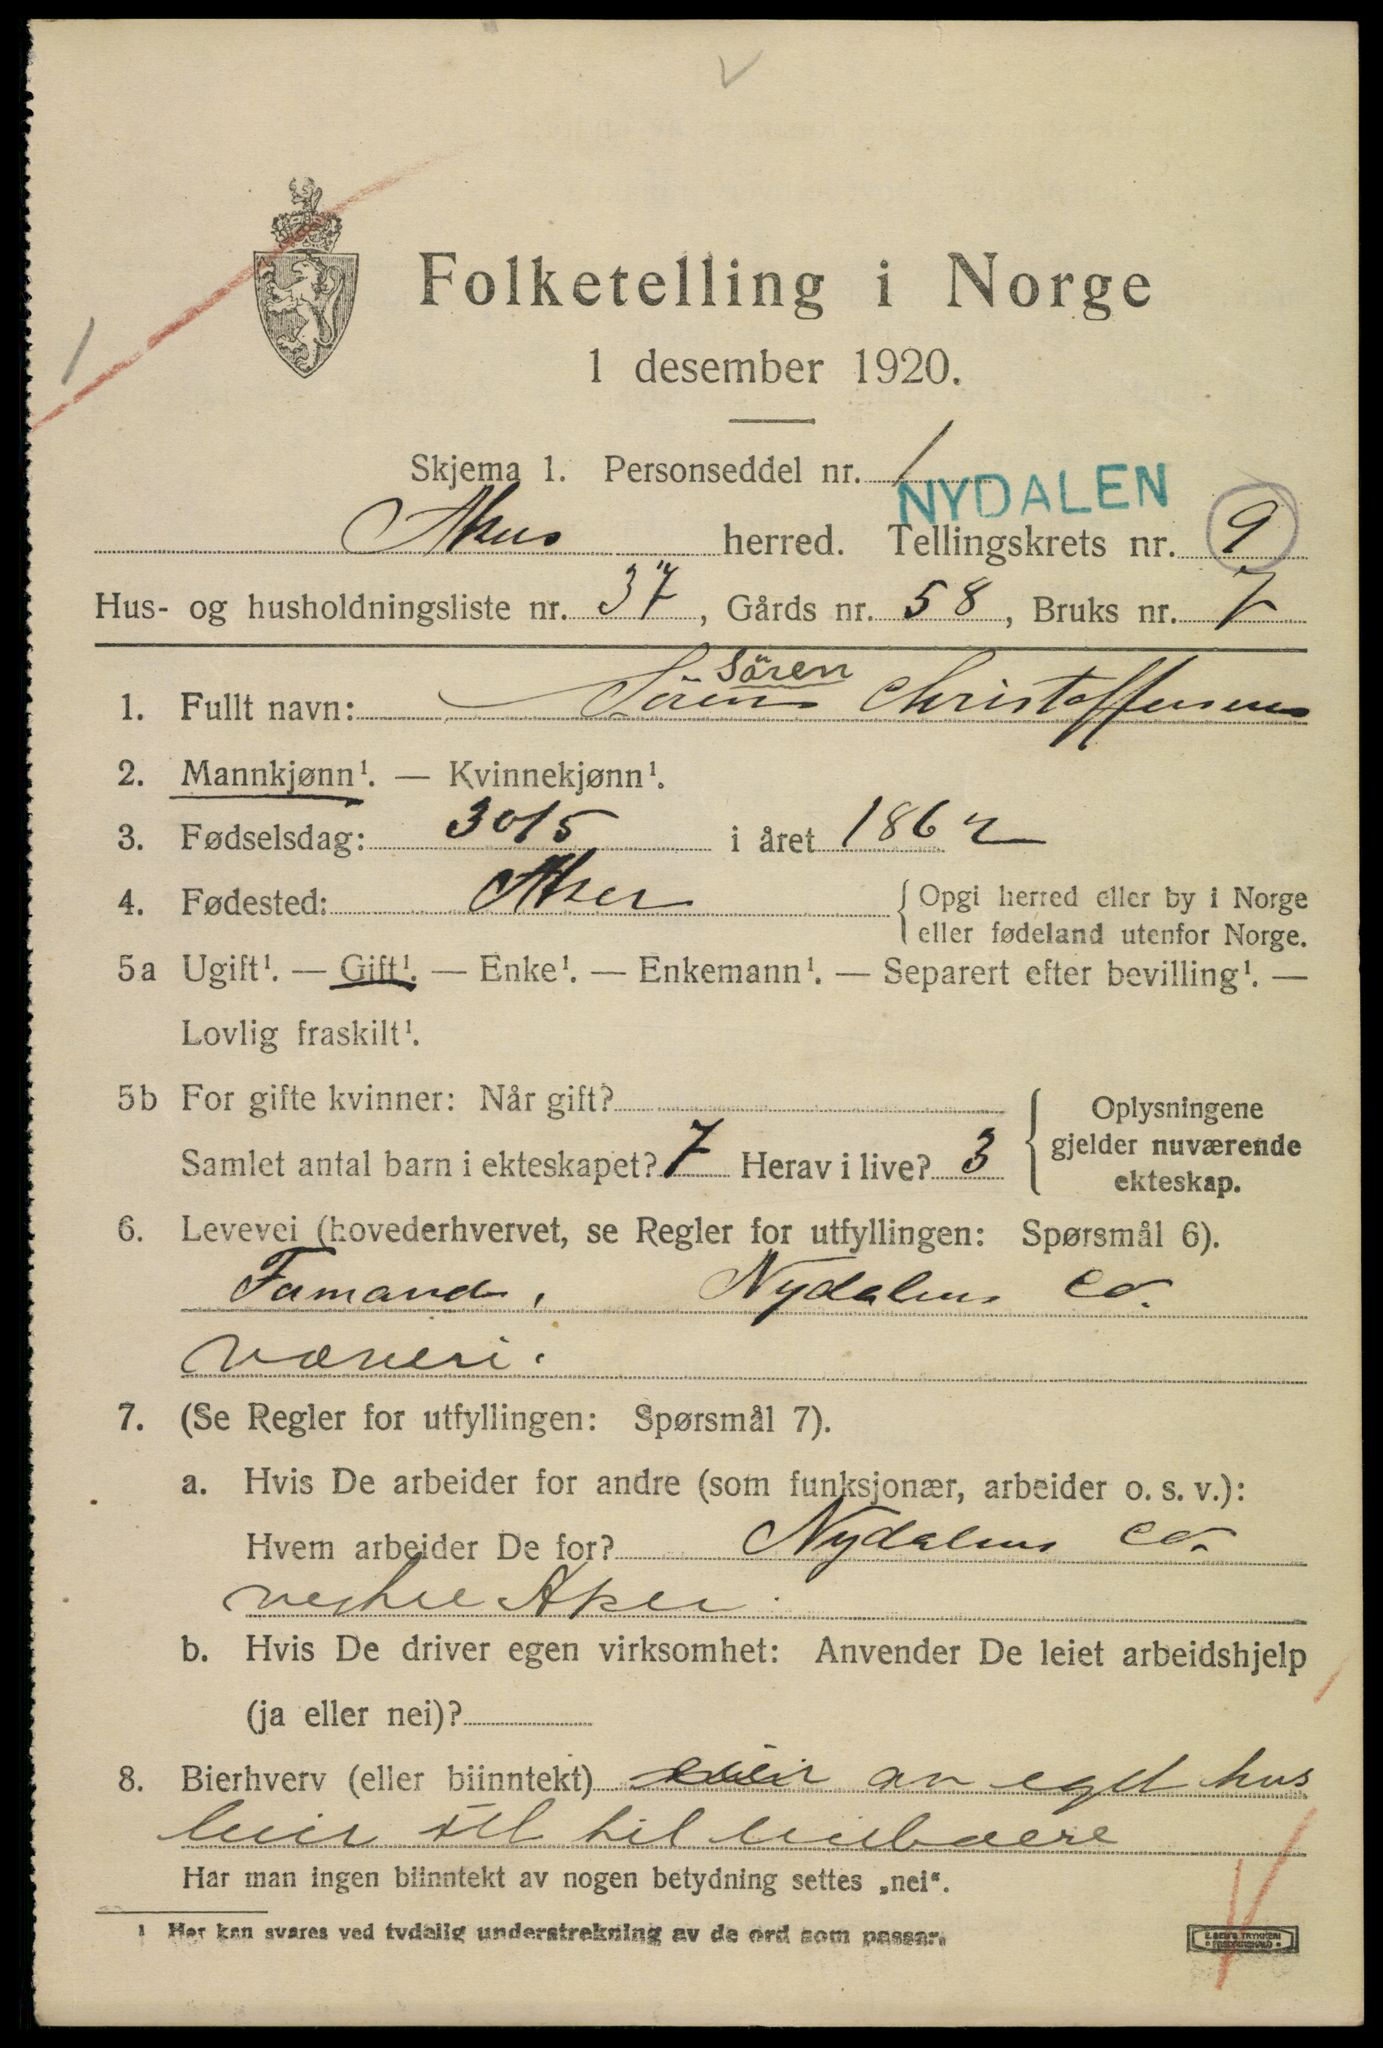 Folketelling i Norge
1 desember 1920.
Skjema 1. Personseddel nr. 1
NYDALEN
Aker herred. Tellingskrets nr. 9
Hus- og husholdningsliste nr. 37, Gårds nr. 58, Bruks nr. 7
Sören
1. Fullt navn: Sören Christoffersen
2. Mannkjønn¹. — Kvinnekjønn¹.
3. Fødselsdag: 30/5 i året 1862
4. Fødested: Aker { Opgi herred eller by i Norge
eller fødeland utenfor Norge.
5a Ugift¹. — Gift¹. — Enke¹. — Enkemann¹. — Separert efter bevilling¹. —
Lovlig fraskilt¹.
5b For gifte kvinner: Når gift?
Samlet antal barn i ekteskapet? 7 Herav i live? 3
{ Oplysningene
gjelder nuværende
ekteskap.
6. Levevei (hovederhvervet, se Regler for utfyllingen: Spørsmål 6).
Formand, Nydalens Co.
væveri.
7. (Se Regler for utfyllingen: Spørsmål 7).
a. Hvis De arbeider for andre (som funksjonær, arbeider o. s. v.):
Hvem arbeider De for? Nydalens Co.
vestre Aker.
b. Hvis De driver egen virksomhet: Anvender De leiet arbeidshjelp
(ja eller nei)?
8. Bierhverv (eller biinntekt) eier av eget hus
leier til leieboere
Har man ingen biinntekt av nogen betydning settes „nei“.
1 Her kan svares ved tydelig understrekning av de ord som passer.